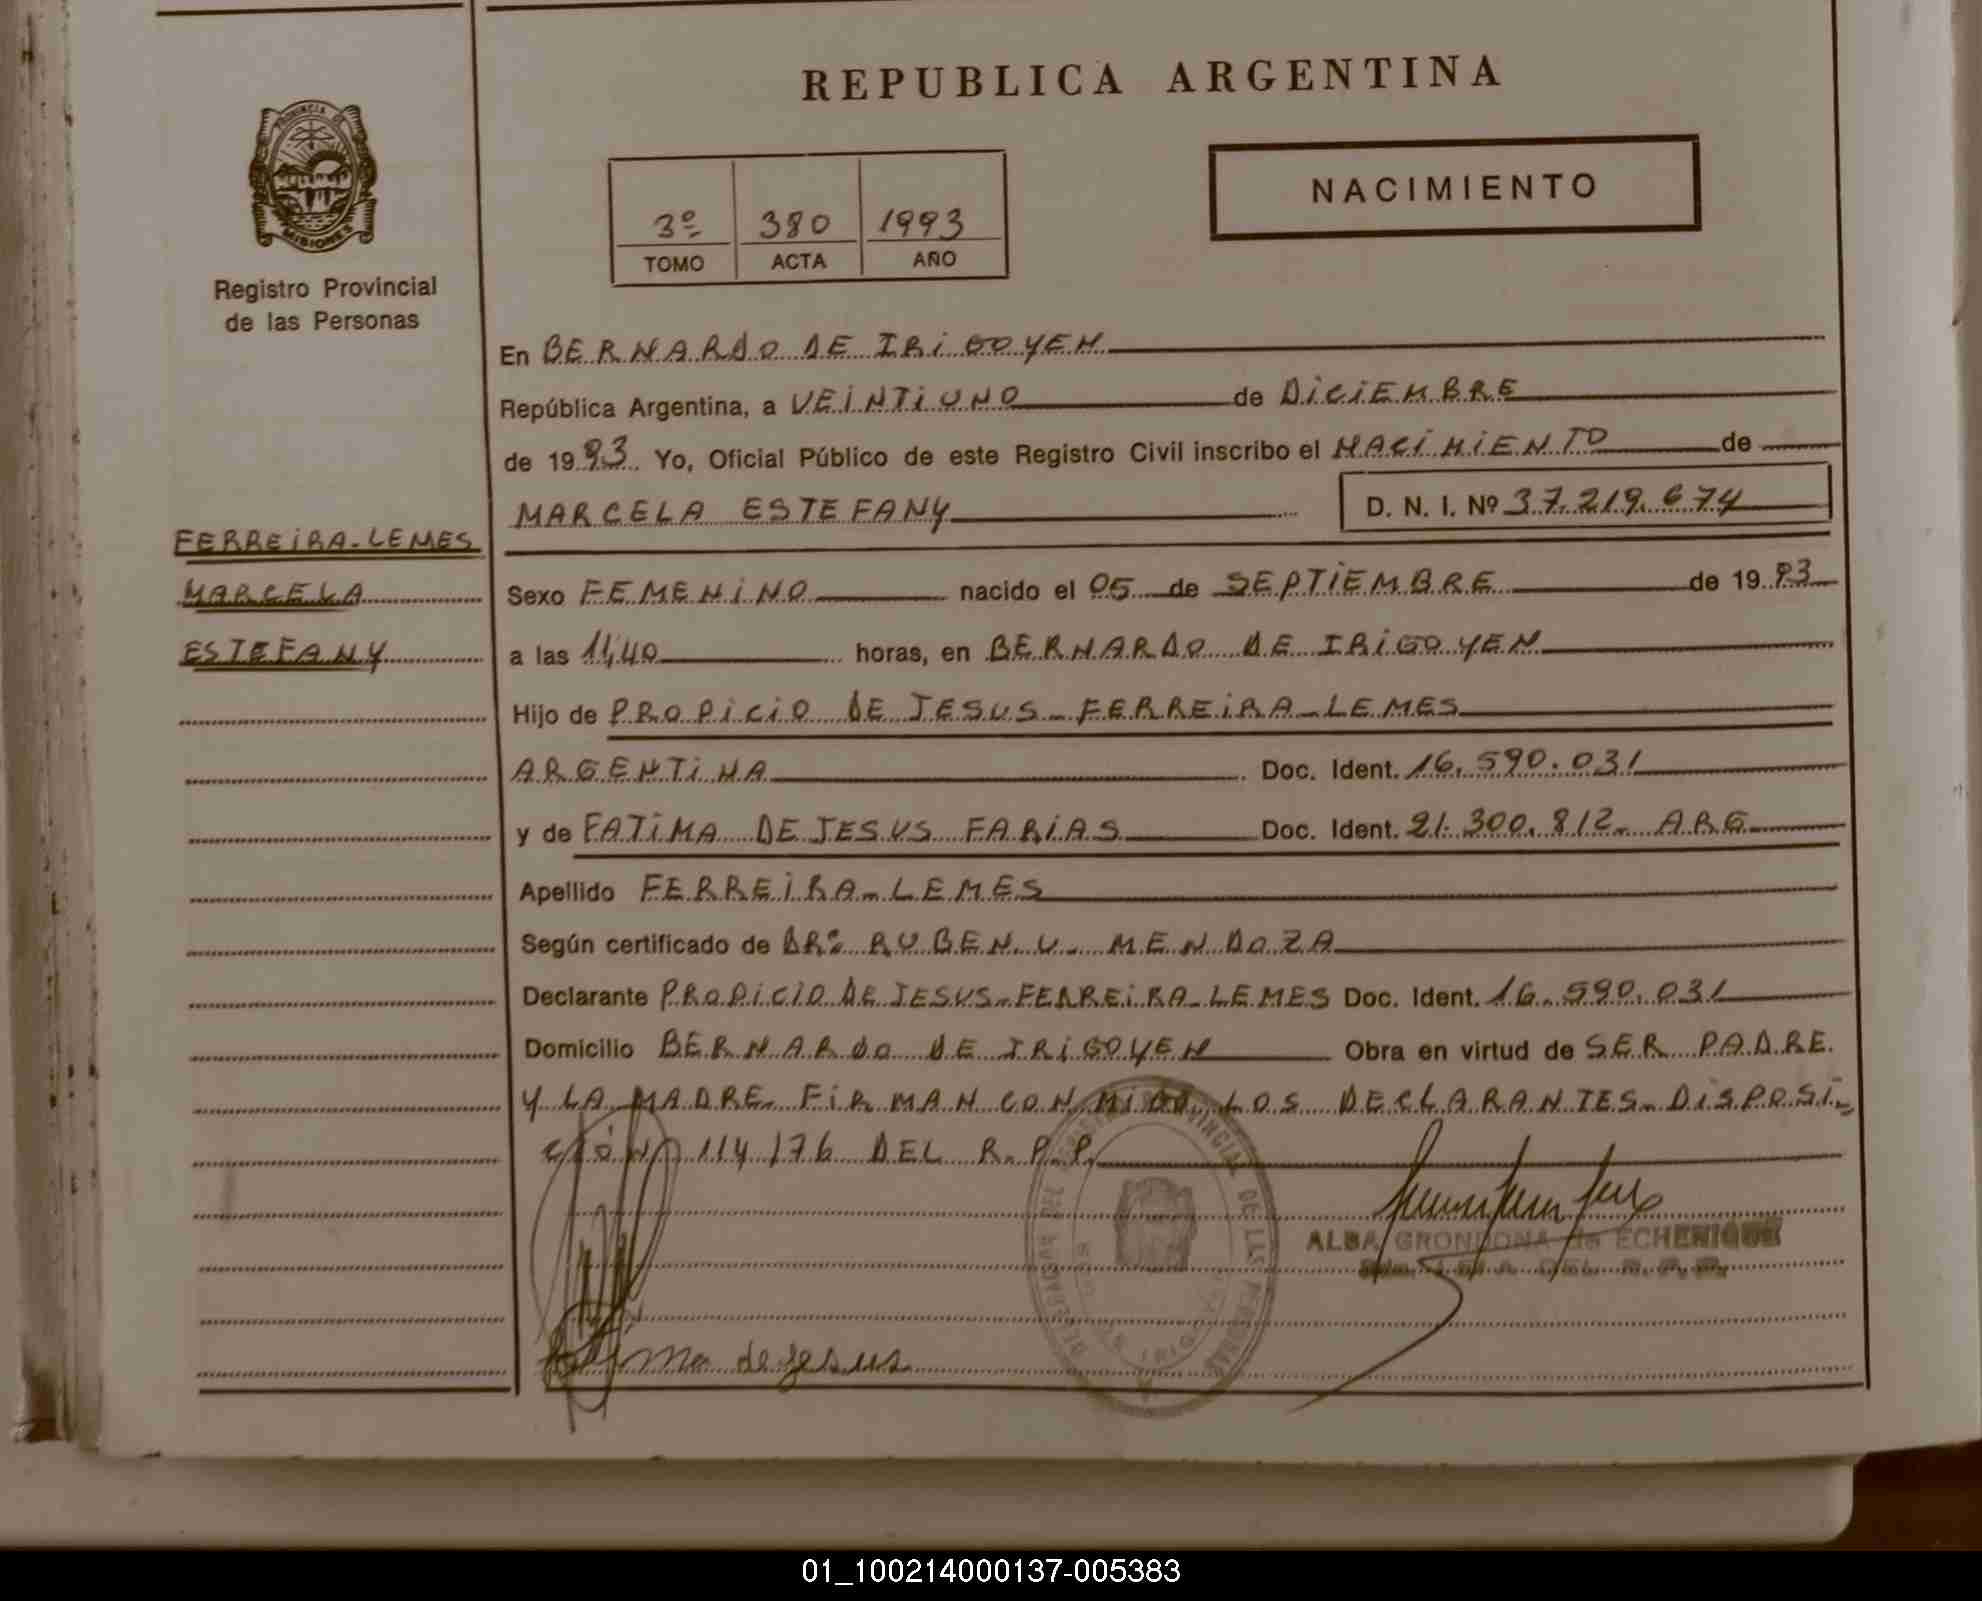 REPUBLICA ARGENTINA
PROVINCIA DE
MISIONES
Registro Provincial
de las Personas
NACIMIENTO
3º 380 1993
TOMO ACTA AÑO
En BERNARDO DE IRIGOYEN
República Argentina, a VEINTIUNO de DICIEMBRE
de 1993 Yo, Oficial Público de este Registro Civil inscribo el NACIMIENTO de
MARCELA ESTEFANY D. N. I. Nº 37.219.674
FERREIRA-LEMES
MARCELA
ESTEFANY
Sexo FEMENINO nacido el 05 de SEPTIEMBRE de 1993
a las 11,40 horas, en BERNARDO DE IRIGOYEN
Hijo de PROPICIO DE JESUS FERREIRA-LEMES
ARGENTINA Doc. Ident. 16.590.031
y de FATIMA DE JESUS FARIAS Doc. Ident. 21.300.812- ARG
Apellido FERREIRA-LEMES
Según certificado de DR: RUBEN U. MENDOZA
Declarante PROPICIO DE JESUS-FERREIRA-LEMES Doc. Ident. 16.590.031
Domicilio BERNARDO DE IRIGOYEN Obra en virtud de SER PADRE
Y LA MADRE. FIRMAN CONMIGO LOS DECLARANTES- DISPOSI-
CIÓN 114/76 DEL R.P.P.
ALBA GRONDONA de ECHENIQUE
DEL R.P.P.
Fatima de Jesus
01_100214000137-005383